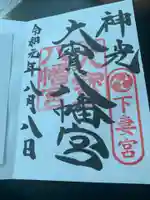 神光
下妻宮
大寳八幡宮
令和元年八月八日